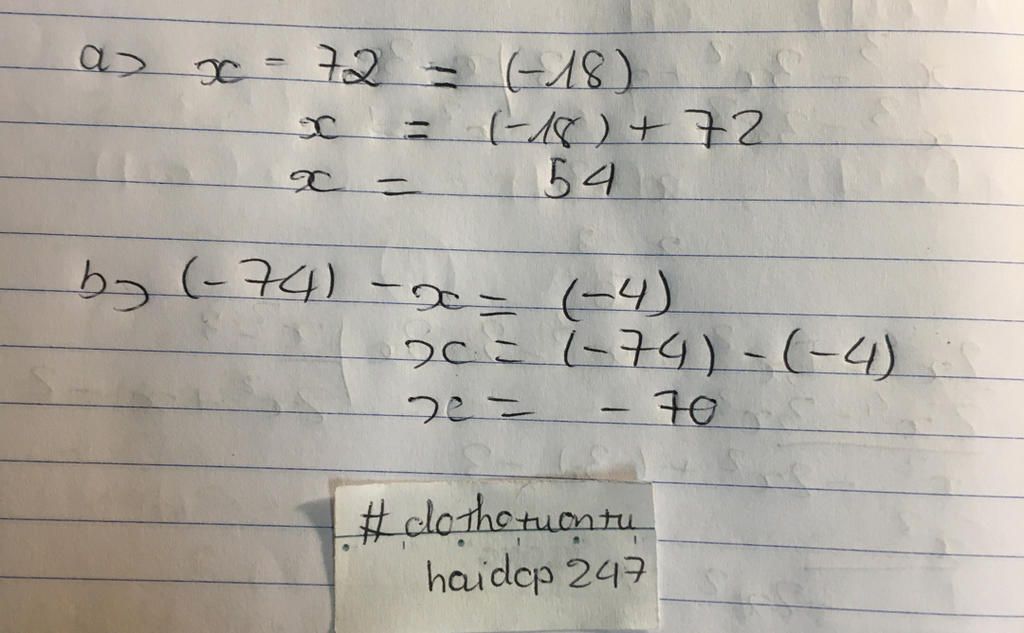 a> x - 72 = (-18)
x = (-18) + 72
x = 54
b> (-74) - x = (-4)
x = (-74) - (-4)
x = - 70
# dothotuontu
haidcp 247